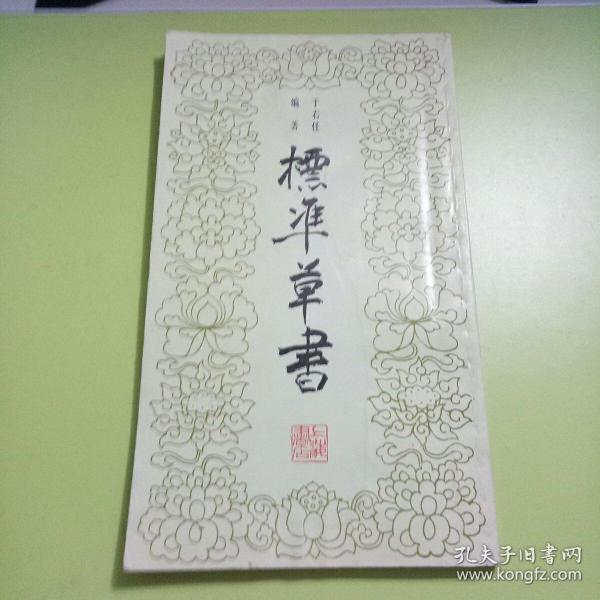 于右任
编著
標準草書
孔夫子旧書网
www.kongfz.com